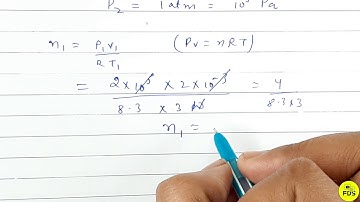 P₂ = 1 atm = 10⁵ Pa
n₁ = P₁V₁ / RT₁ (PV = nRT)
= 2×10⁵ × 2×10⁻³ / 8.3 × 3 = 4 / 8.3×3
n₁ =
FDS